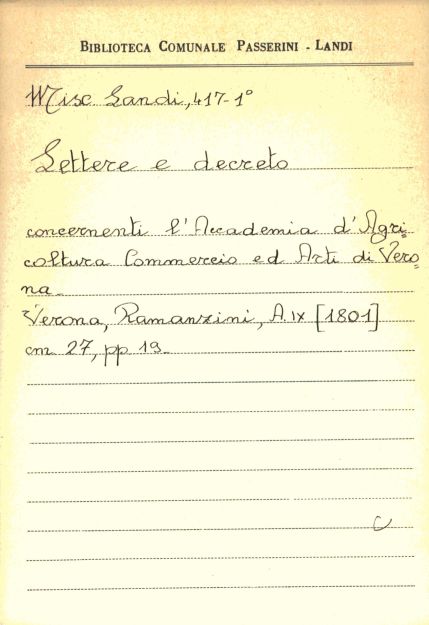 BIBLIOTECA COMUNALE PASSERINI - LANDI
Misc. Landi, 417-1°
Lettere e decreto
concernenti l'Accademia d'Agri=
coltura Commercio ed Arti di Vero=
na.
Verona, Ramanzini, A. IX [1801]
cm. 27, pp 19.
C